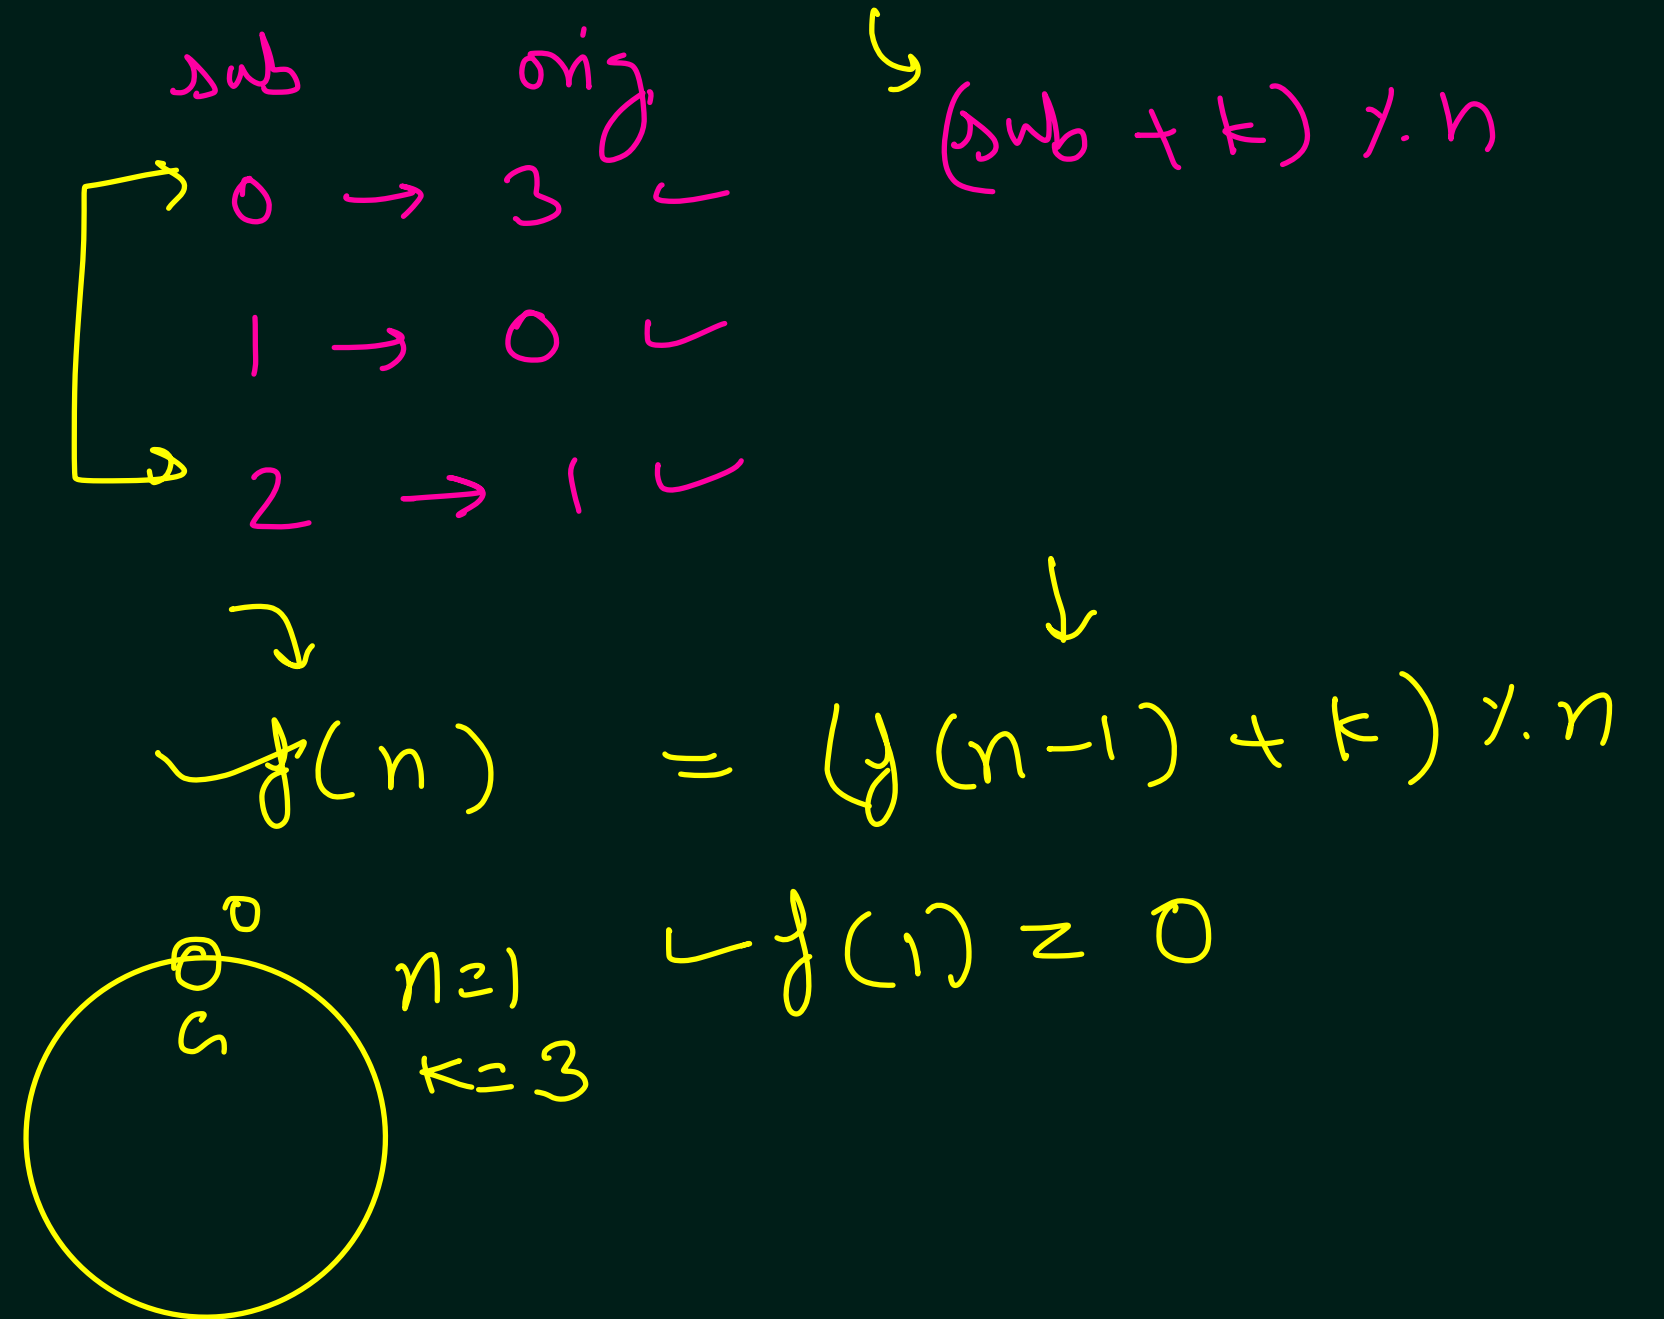 sub orig.
(sub + k) % n
0 → 3 ✓
1 → 0 ✓
2 → 1 ✓
f(n) = (f(n-1) + k) % n
0
f(1) = 0
n=1
k=3